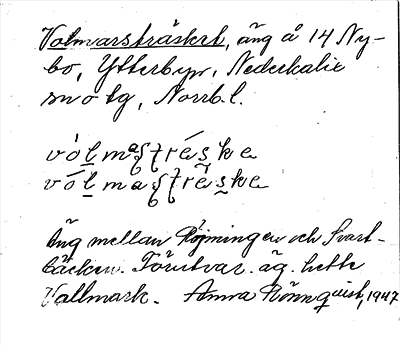 Volmarsträsket, äng å 14 Ny-
bo, Ytterbyn, Nederkalix
sn o tg, Norrb. l.
vòlmaʂtrέske
vólmaʂtrὲske
Äng mellan Röjningen och Svart-
bäcken. Förutvar. äg. hette
Vallmark. Anna Rönnquist, 1947